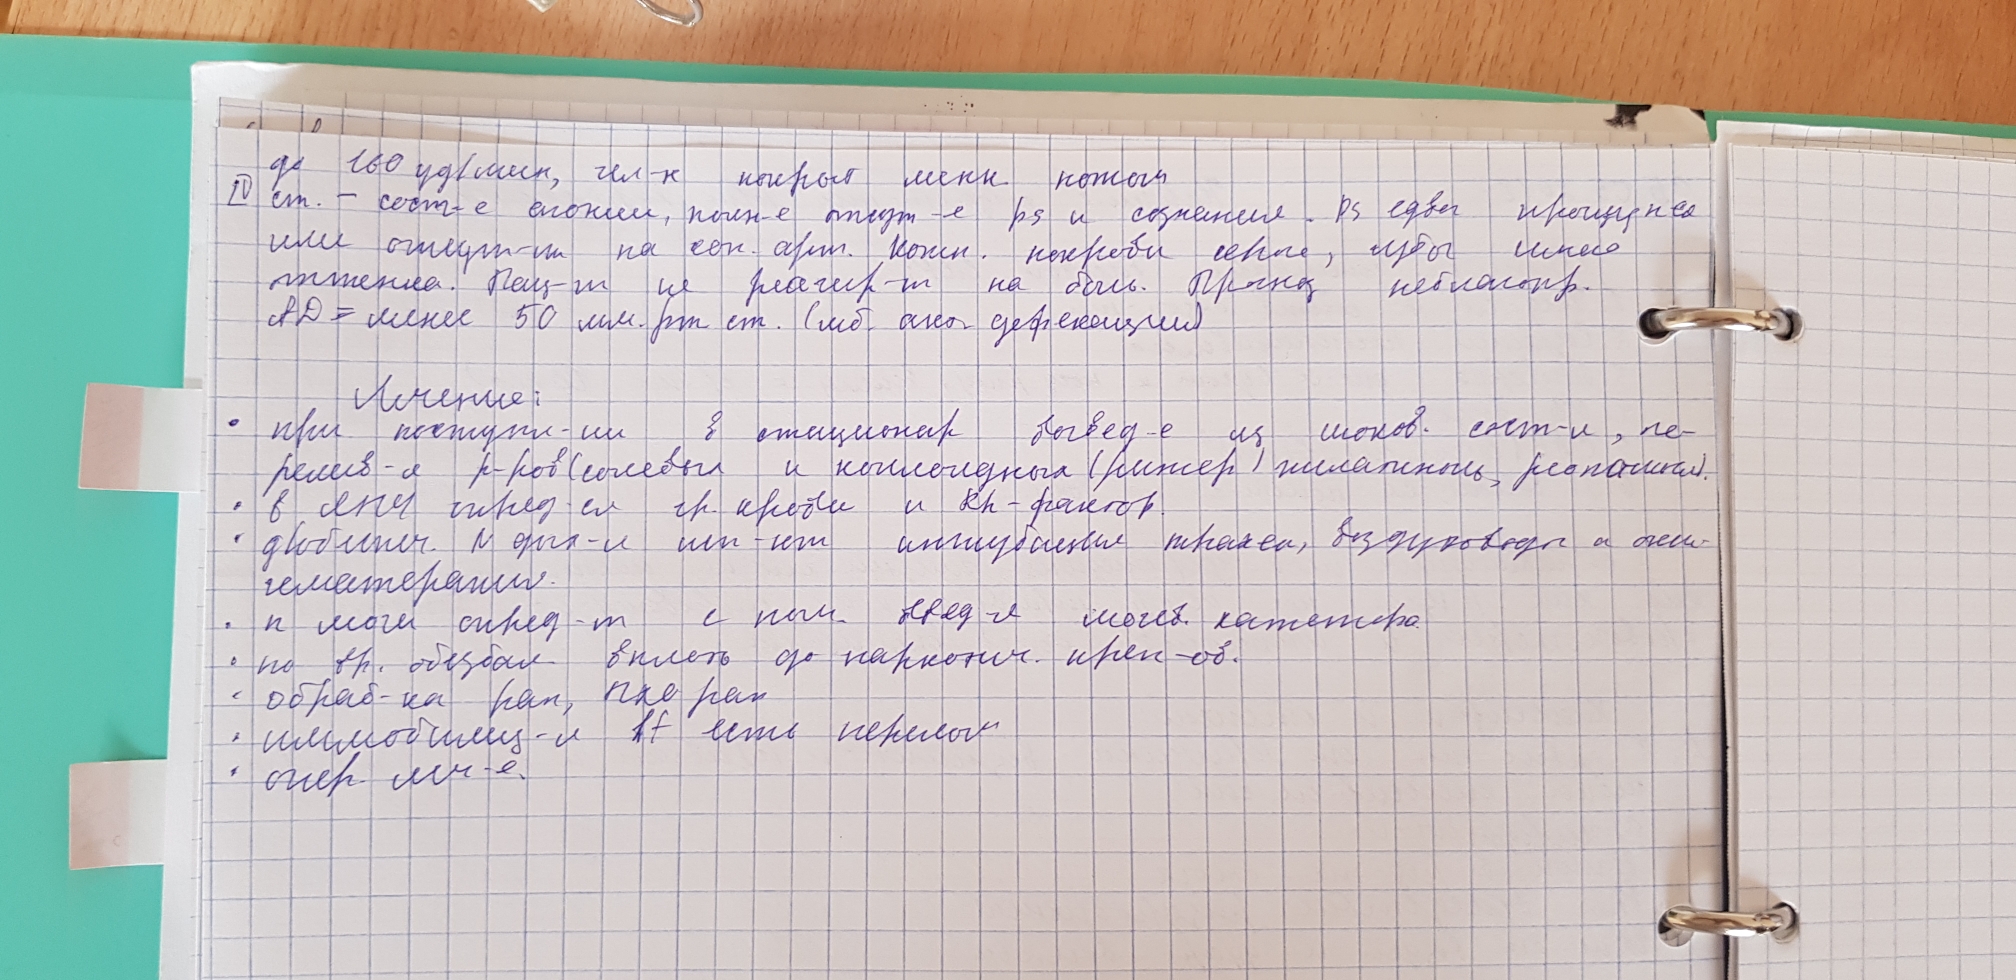 до 160 уд/мин, чел-к покрыт липк. потом
IV ст. – сост-е агонии, полн-е отсут-е ps и сознания. Ps едва прощупыв
или отсут-т на сон. арт. Кожн. покровы серые, губы
оттенка. Пац-т не реагир-т на боль. Прогноз неблагопр.
АД = менее 50 мм. рт ст. (мб. акт дефекации)
Лечение:
• при поступл-ии в стационар вывед-е из шоков. сост-я, пе-
релив-я р-ров (солевых и коллоидных (рингер) желатиноль, реопаликл).
• в опред-ся гр. крови и Rh-фактор.
• N дых-я исп-ют интубация трахеи, воздуховоды и окси-
генотерапия.
• п мочи опред-т с пом. введ-я мочев. катетера
• по вр. обезбол. вплоть до наркотич. преп-ов.
• обраб-ка ран, ПХО ран
• иммобилиз-я If есть перелом
• опер. леч-е.